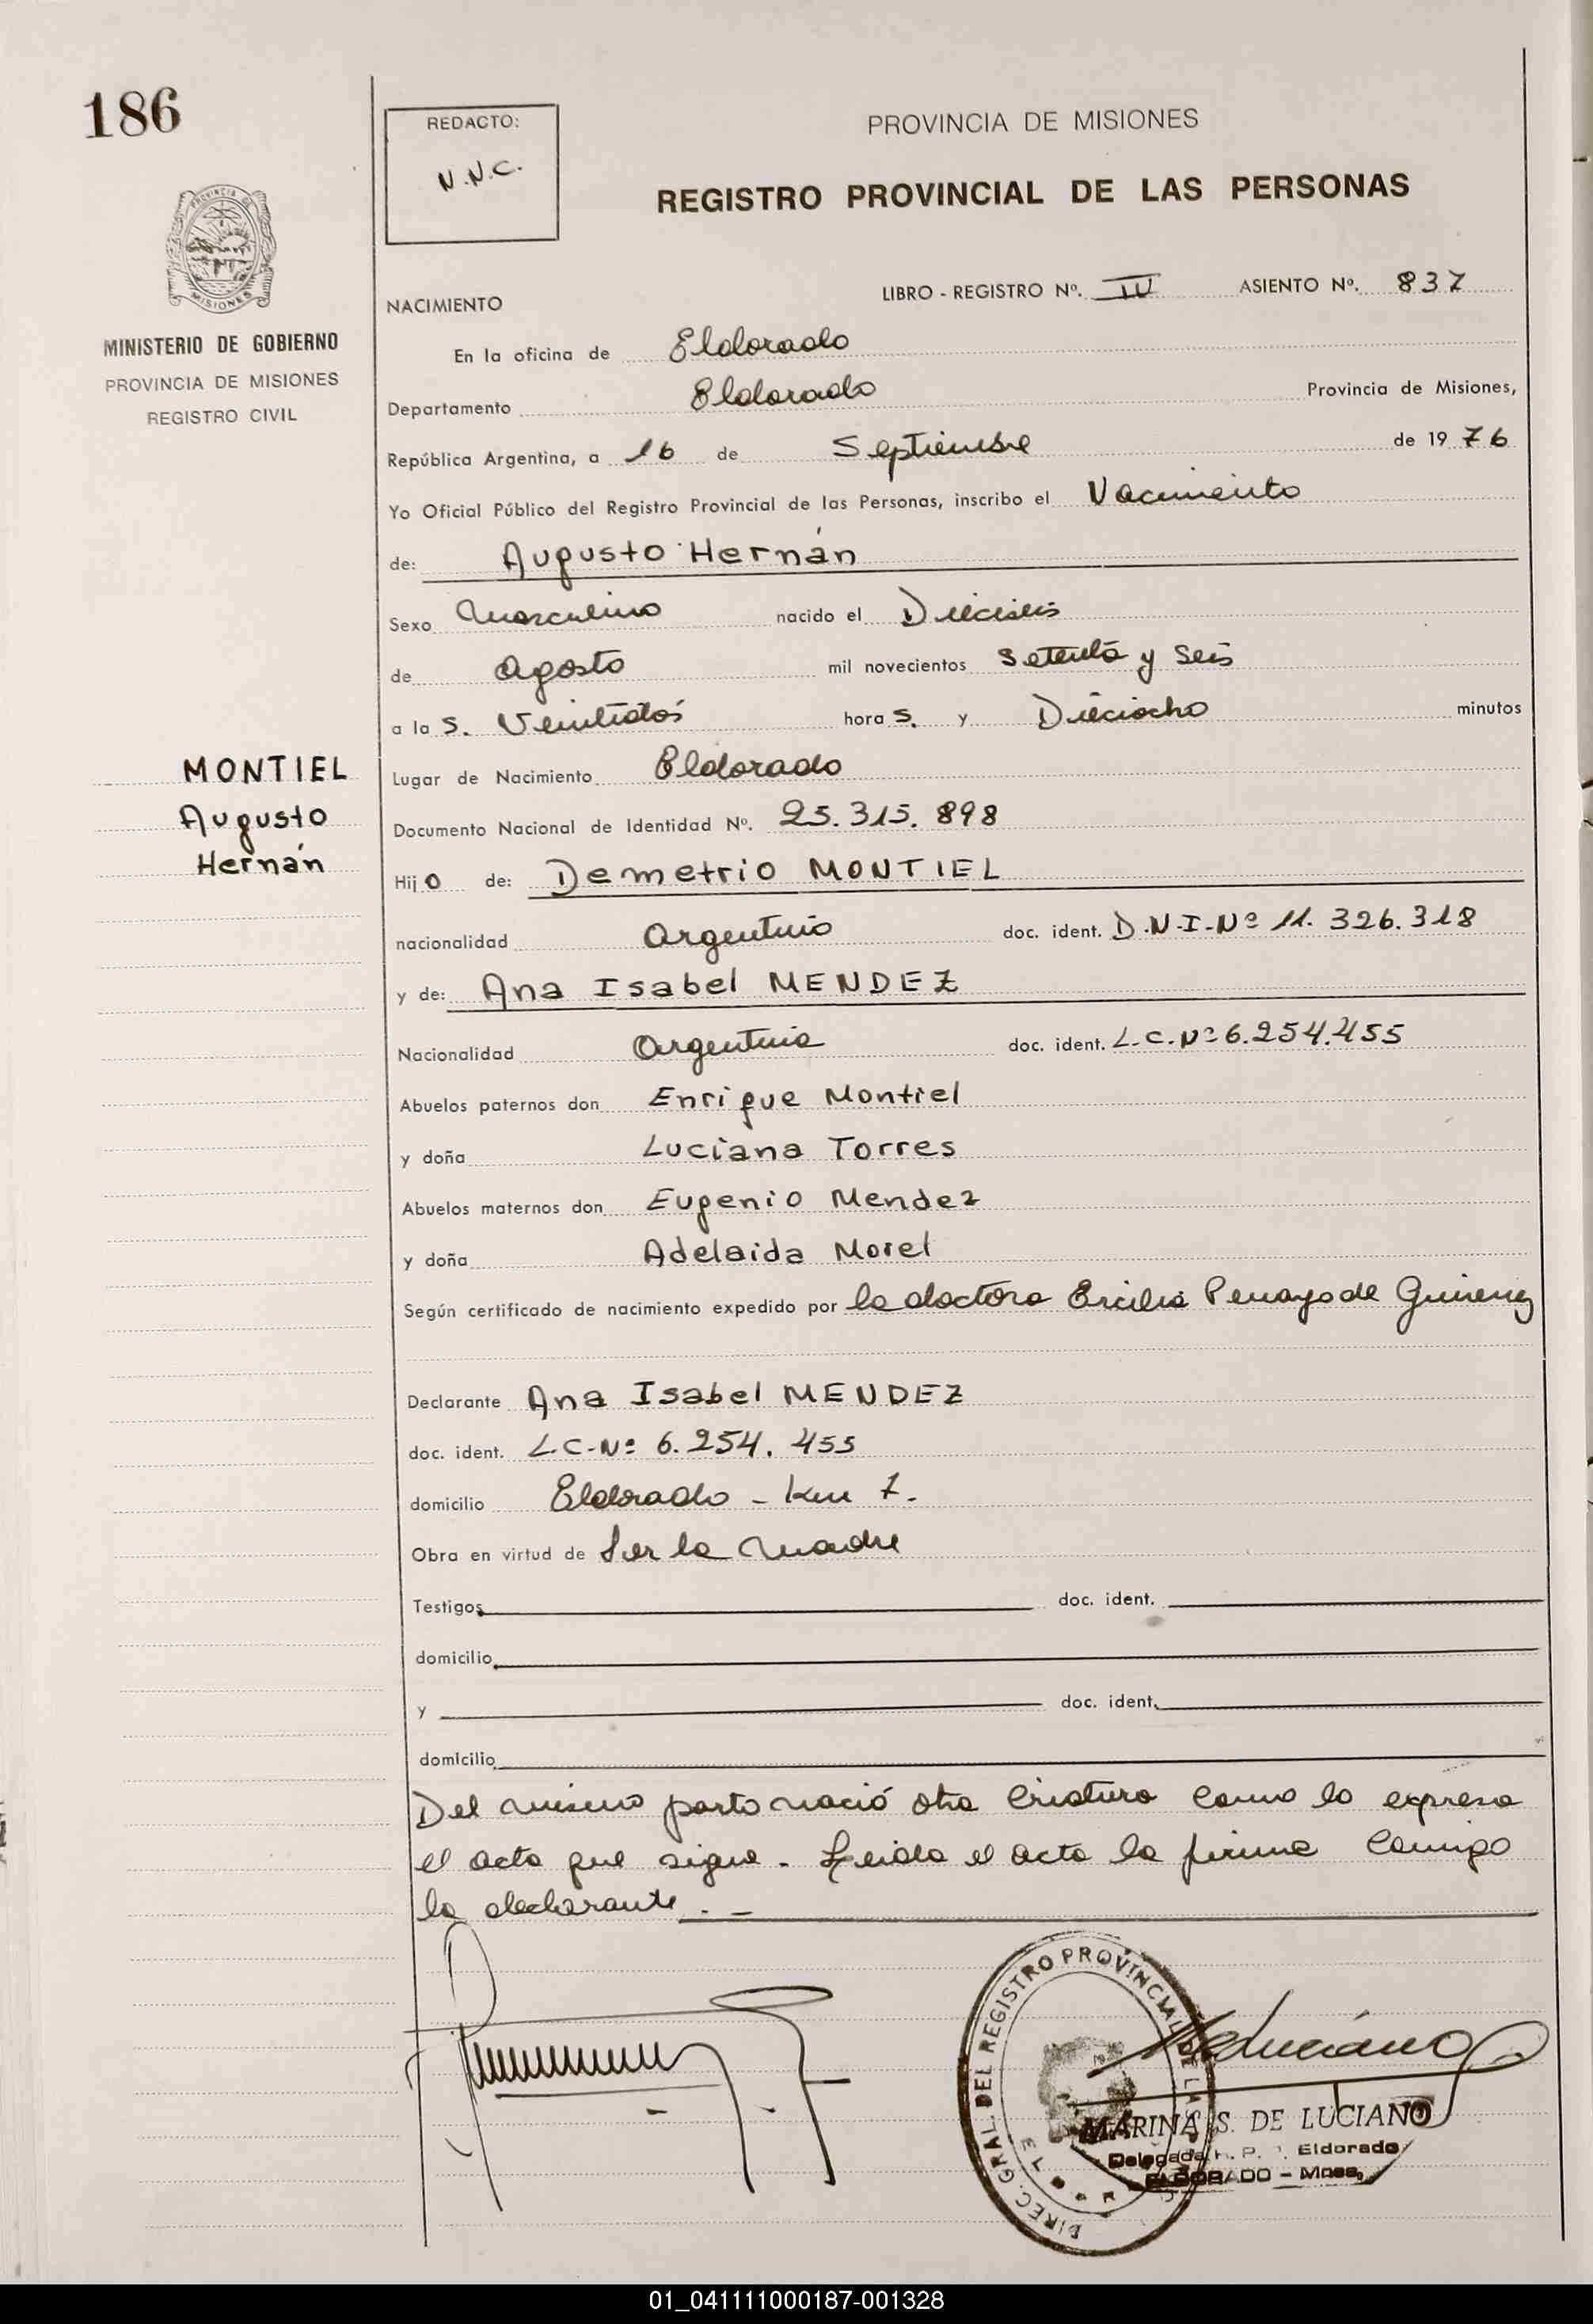 186
REDACTO:
N.N.C.
PROVINCIA DE MISIONES
REGISTRO PROVINCIAL DE LAS PERSONAS
PROVINCIA DE
MISIONES
MINISTERIO DE GOBIERNO
PROVINCIA DE MISIONES
REGISTRO CIVIL
LIBRO - REGISTRO Nº. IV ASIENTO Nº. 837
NACIMIENTO
En la oficina de Eldorado
Departamento Eldorado Provincia de Misiones,
República Argentina, a 16 de Septiembre de 1976
Yo Oficial Público del Registro Provincial de las Personas, inscribo el Nacimiento
de: Augusto Hernán
Sexo Masculino nacido el Dieciseis
de Agosto mil novecientos Setenta y Seis
a las. Veintidós horas. y Dieciocho minutos
MONTIEL
Augusto
Hernán
Lugar de Nacimiento Eldorado
Documento Nacional de Identidad Nº. 25.315.898
Hijo de: Demetrio MONTIEL
nacionalidad Argentino doc. ident. D.N.I-Nº 11.326.318
y de: Ana Isabel MENDEZ
Nacionalidad Argentina doc. ident. L.C.Nº 6.254.455
Abuelos paternos don Enrique Montiel
y doña Luciana Torres
Abuelos maternos don Eugenio Mendez
y doña Adelaida Morel
Según certificado de nacimiento expedido por la doctora Ercilia Penayo de
Declarante Ana Isabel MENDEZ
doc. ident. L.C-Nº 6.254.455
domicilio Eldorado - Km 7.
Obra en virtud de Ser la Madre
Testigos doc. ident.
domicilio
y doc. ident.
domicilio
Del mismo parto nació otra Criatura como lo expresa
el acta que sigue. Leida el acta la firma Comigo
la declarante. -
DIREC. GRAL. DEL REGISTRO PROVINCIAL DE LAS
MARINA S. DE LUCIANO
Delegada R. P. Eldorado
ELDORADO - Mnes.
01_041111000187-001328